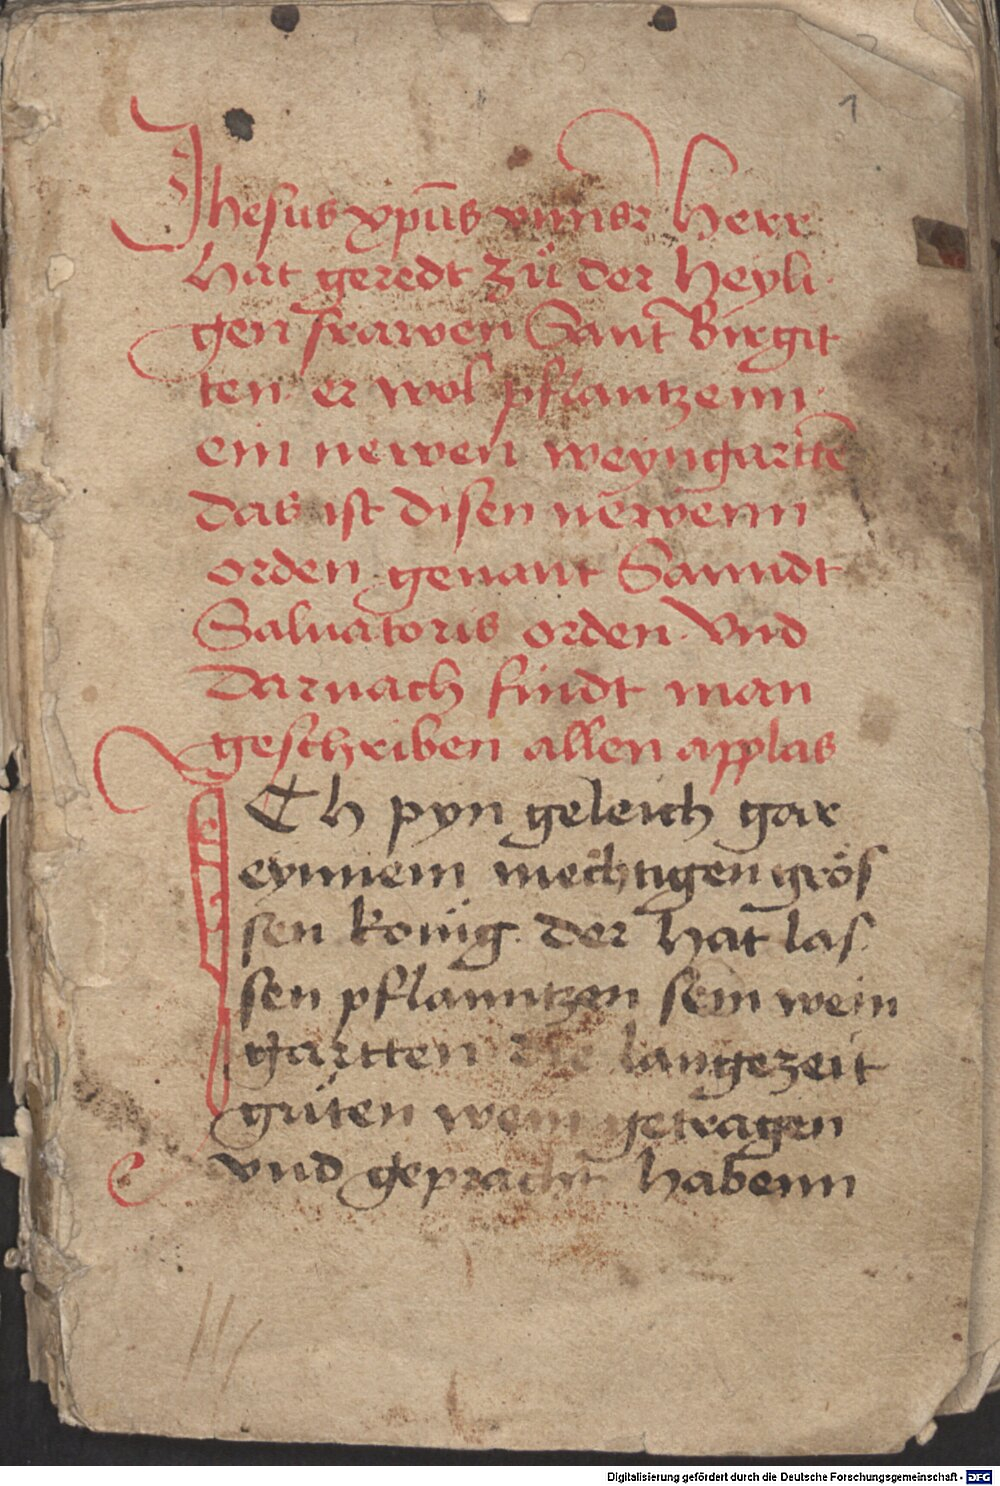 1
Jhesus xp̄us vnnser Herr
hat geredt zů der heyli
gen frawen Sant Birgit
ten er wol pflantzenn
ein newen weyngartte̅
das ist disen newenn
orden genant Sanndt
Saluatoris orden vnd
darnach findt man
geschriben allen applas
ICh pyn geleich gar
eynnem mechtigen grös
sen König der hat las
sen pflanntzen sein wein
gartten die langezeit
gůten wein getragen
vnd gepracht habenn
Digitalisierung gefördert durch die Deutsche Forschungsgemeinschaft - DFG